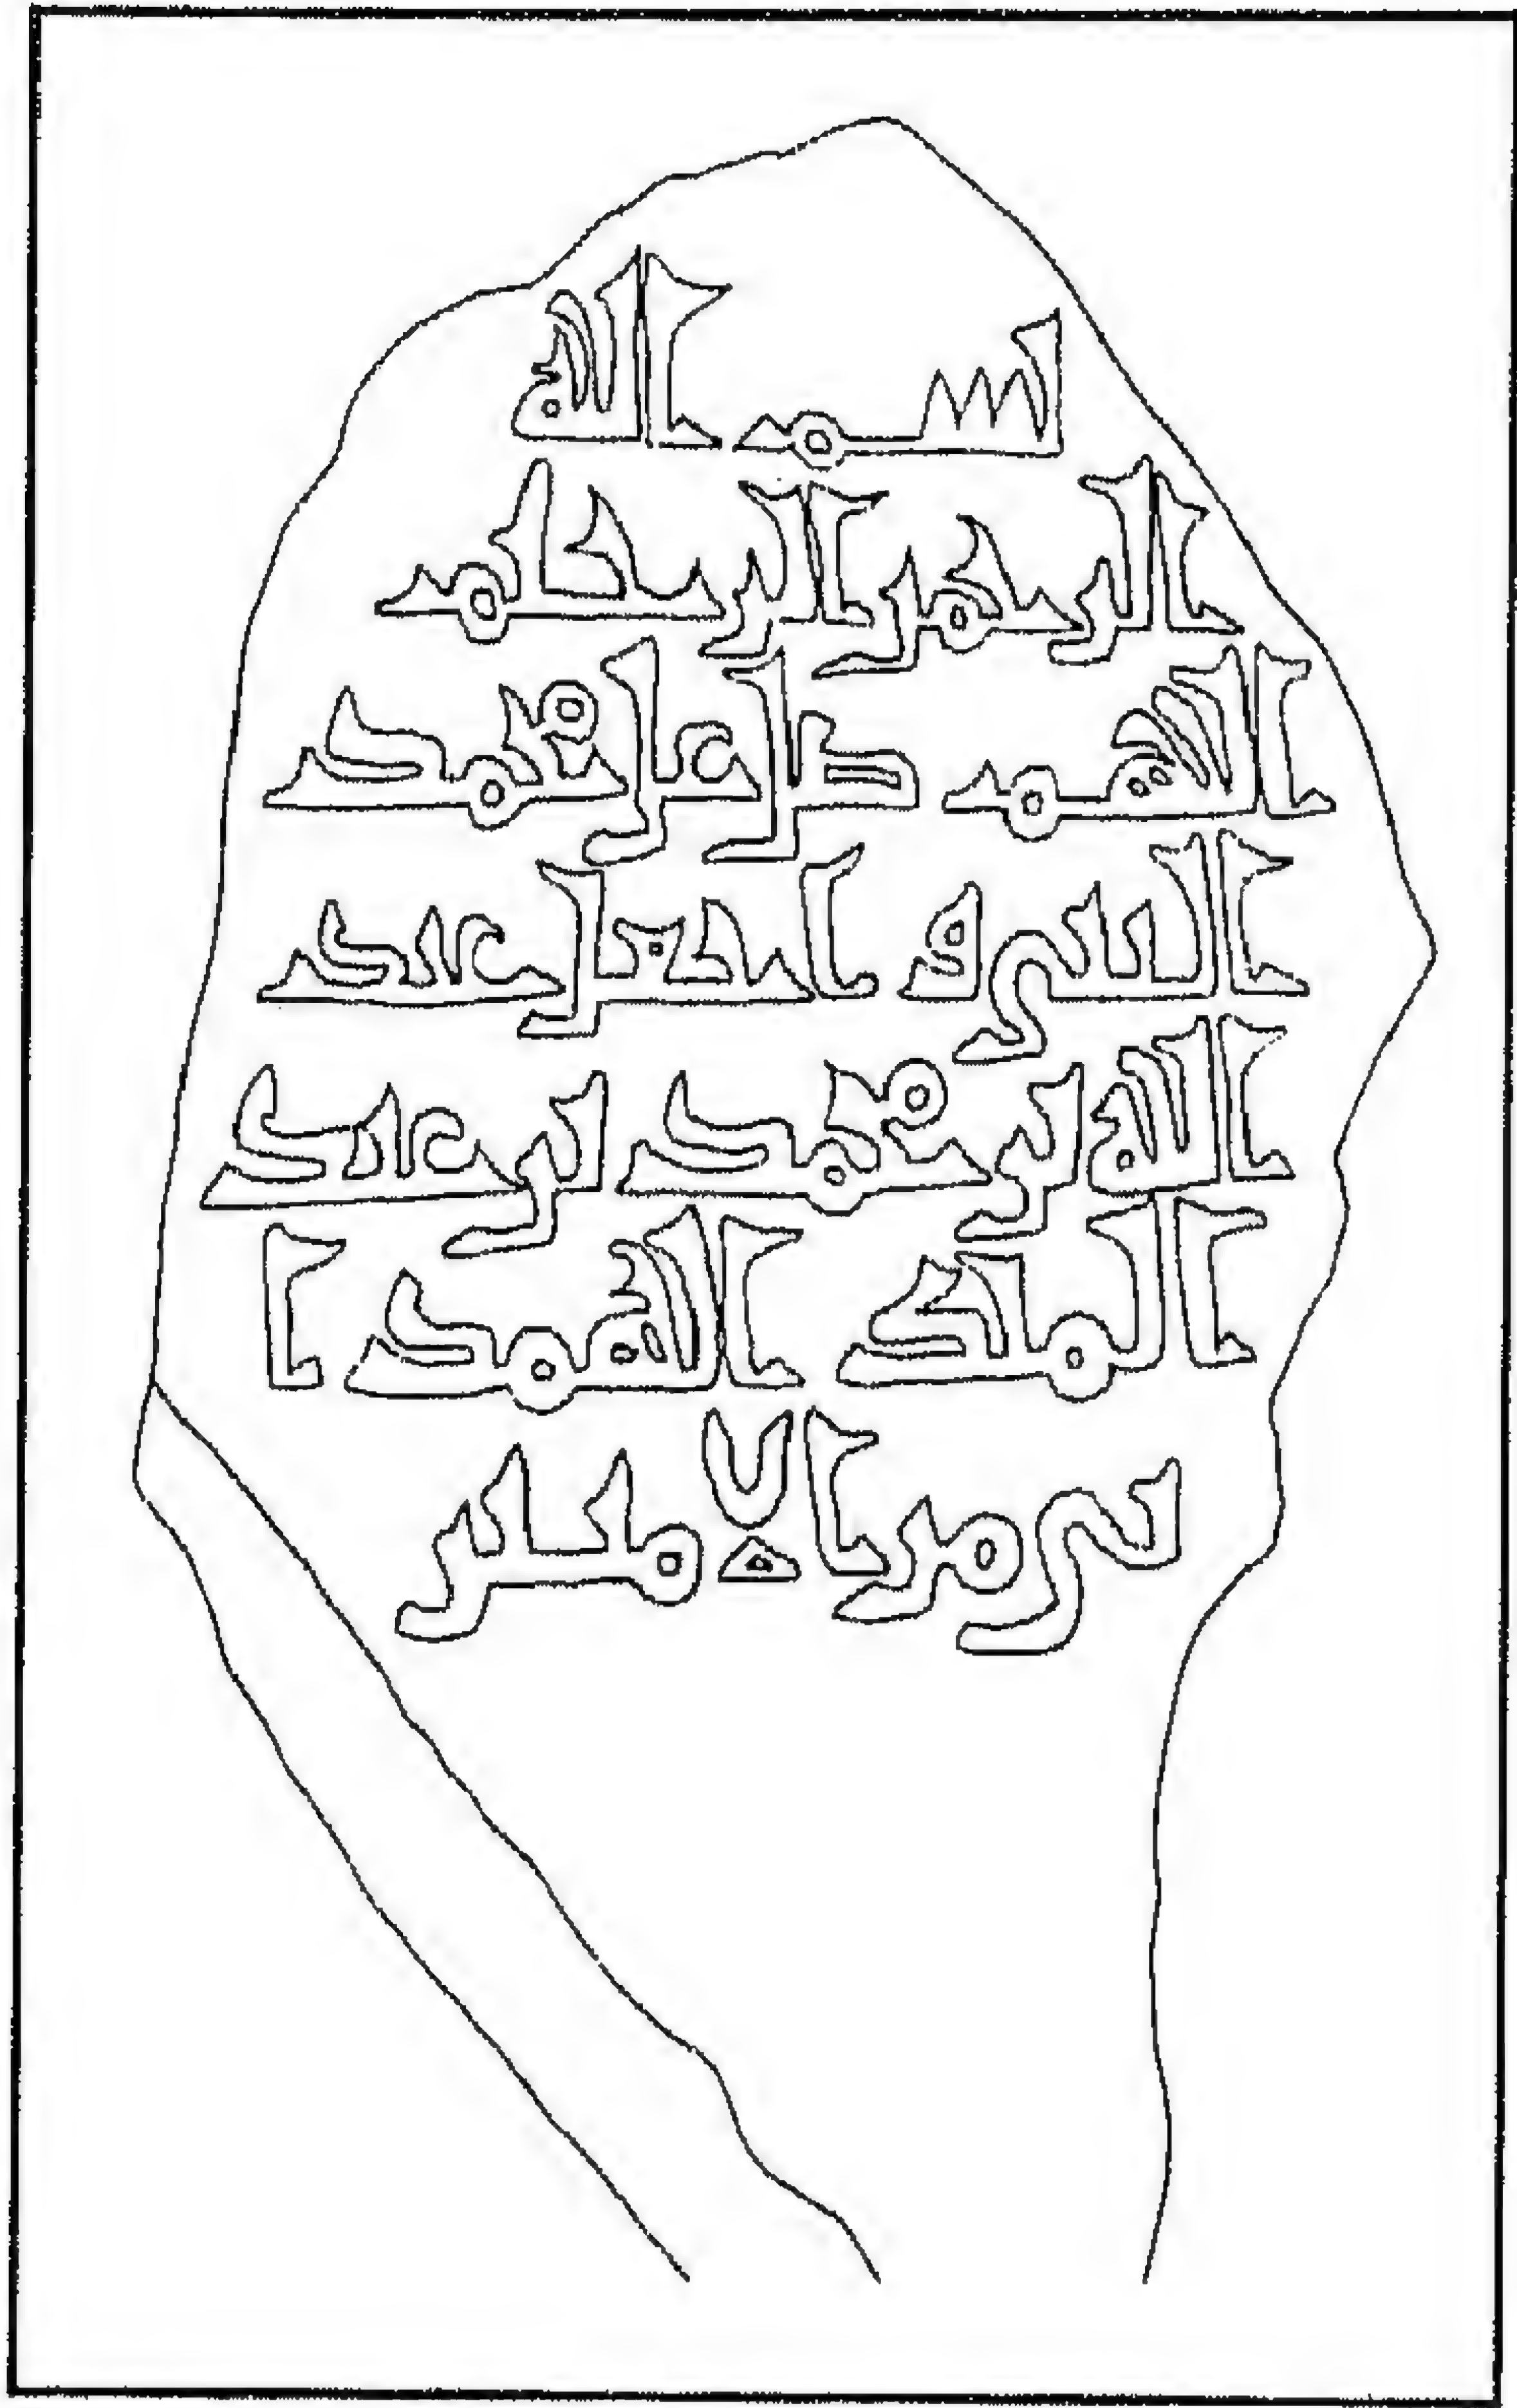 بسم الله
الرحمن الرحيم
اللهم صل على محمد
النبي و اغفر لعبد
الله بن محمد بن عبد
الملك